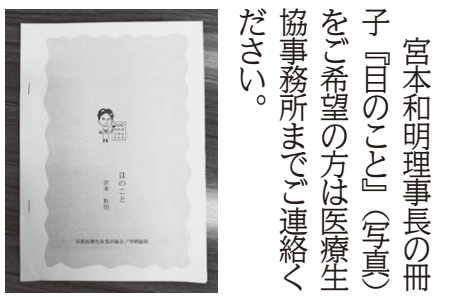 宮本和明理事長の冊
子『目のこと』（写真）
をご希望の方は医療生
協事務所までご連絡く
ださい。
目のこと
宮本 和明